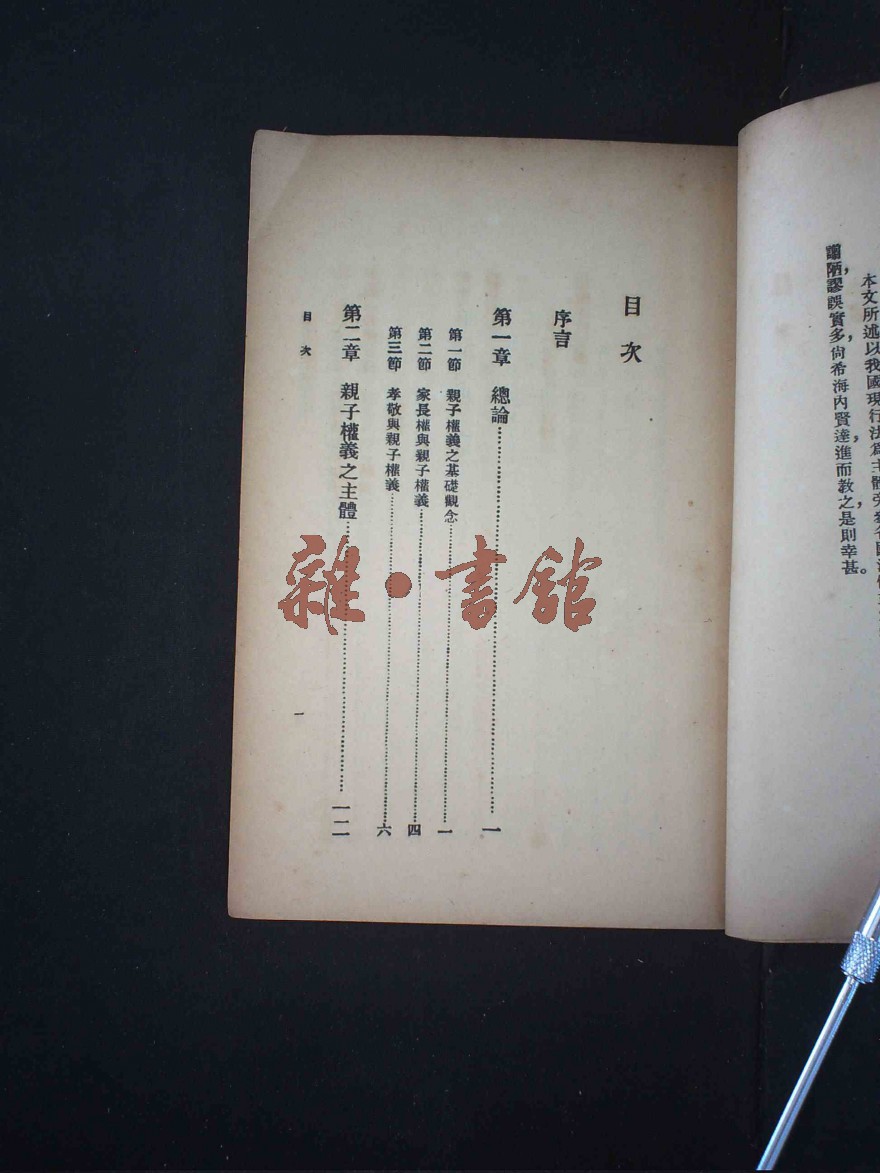 本文所述以我國現行法爲主體
謭陋,謬誤實多,尙希海內賢達,進而敎之,是則幸甚。
目次
序言
第一章 總論……一
第一節 親子權義之基礎觀念……一
第二節 家長權與親子權義……四
第三節 孝敬與親子權義……六
第二章 親子權義之主體……一二
目次
一
雜·書館